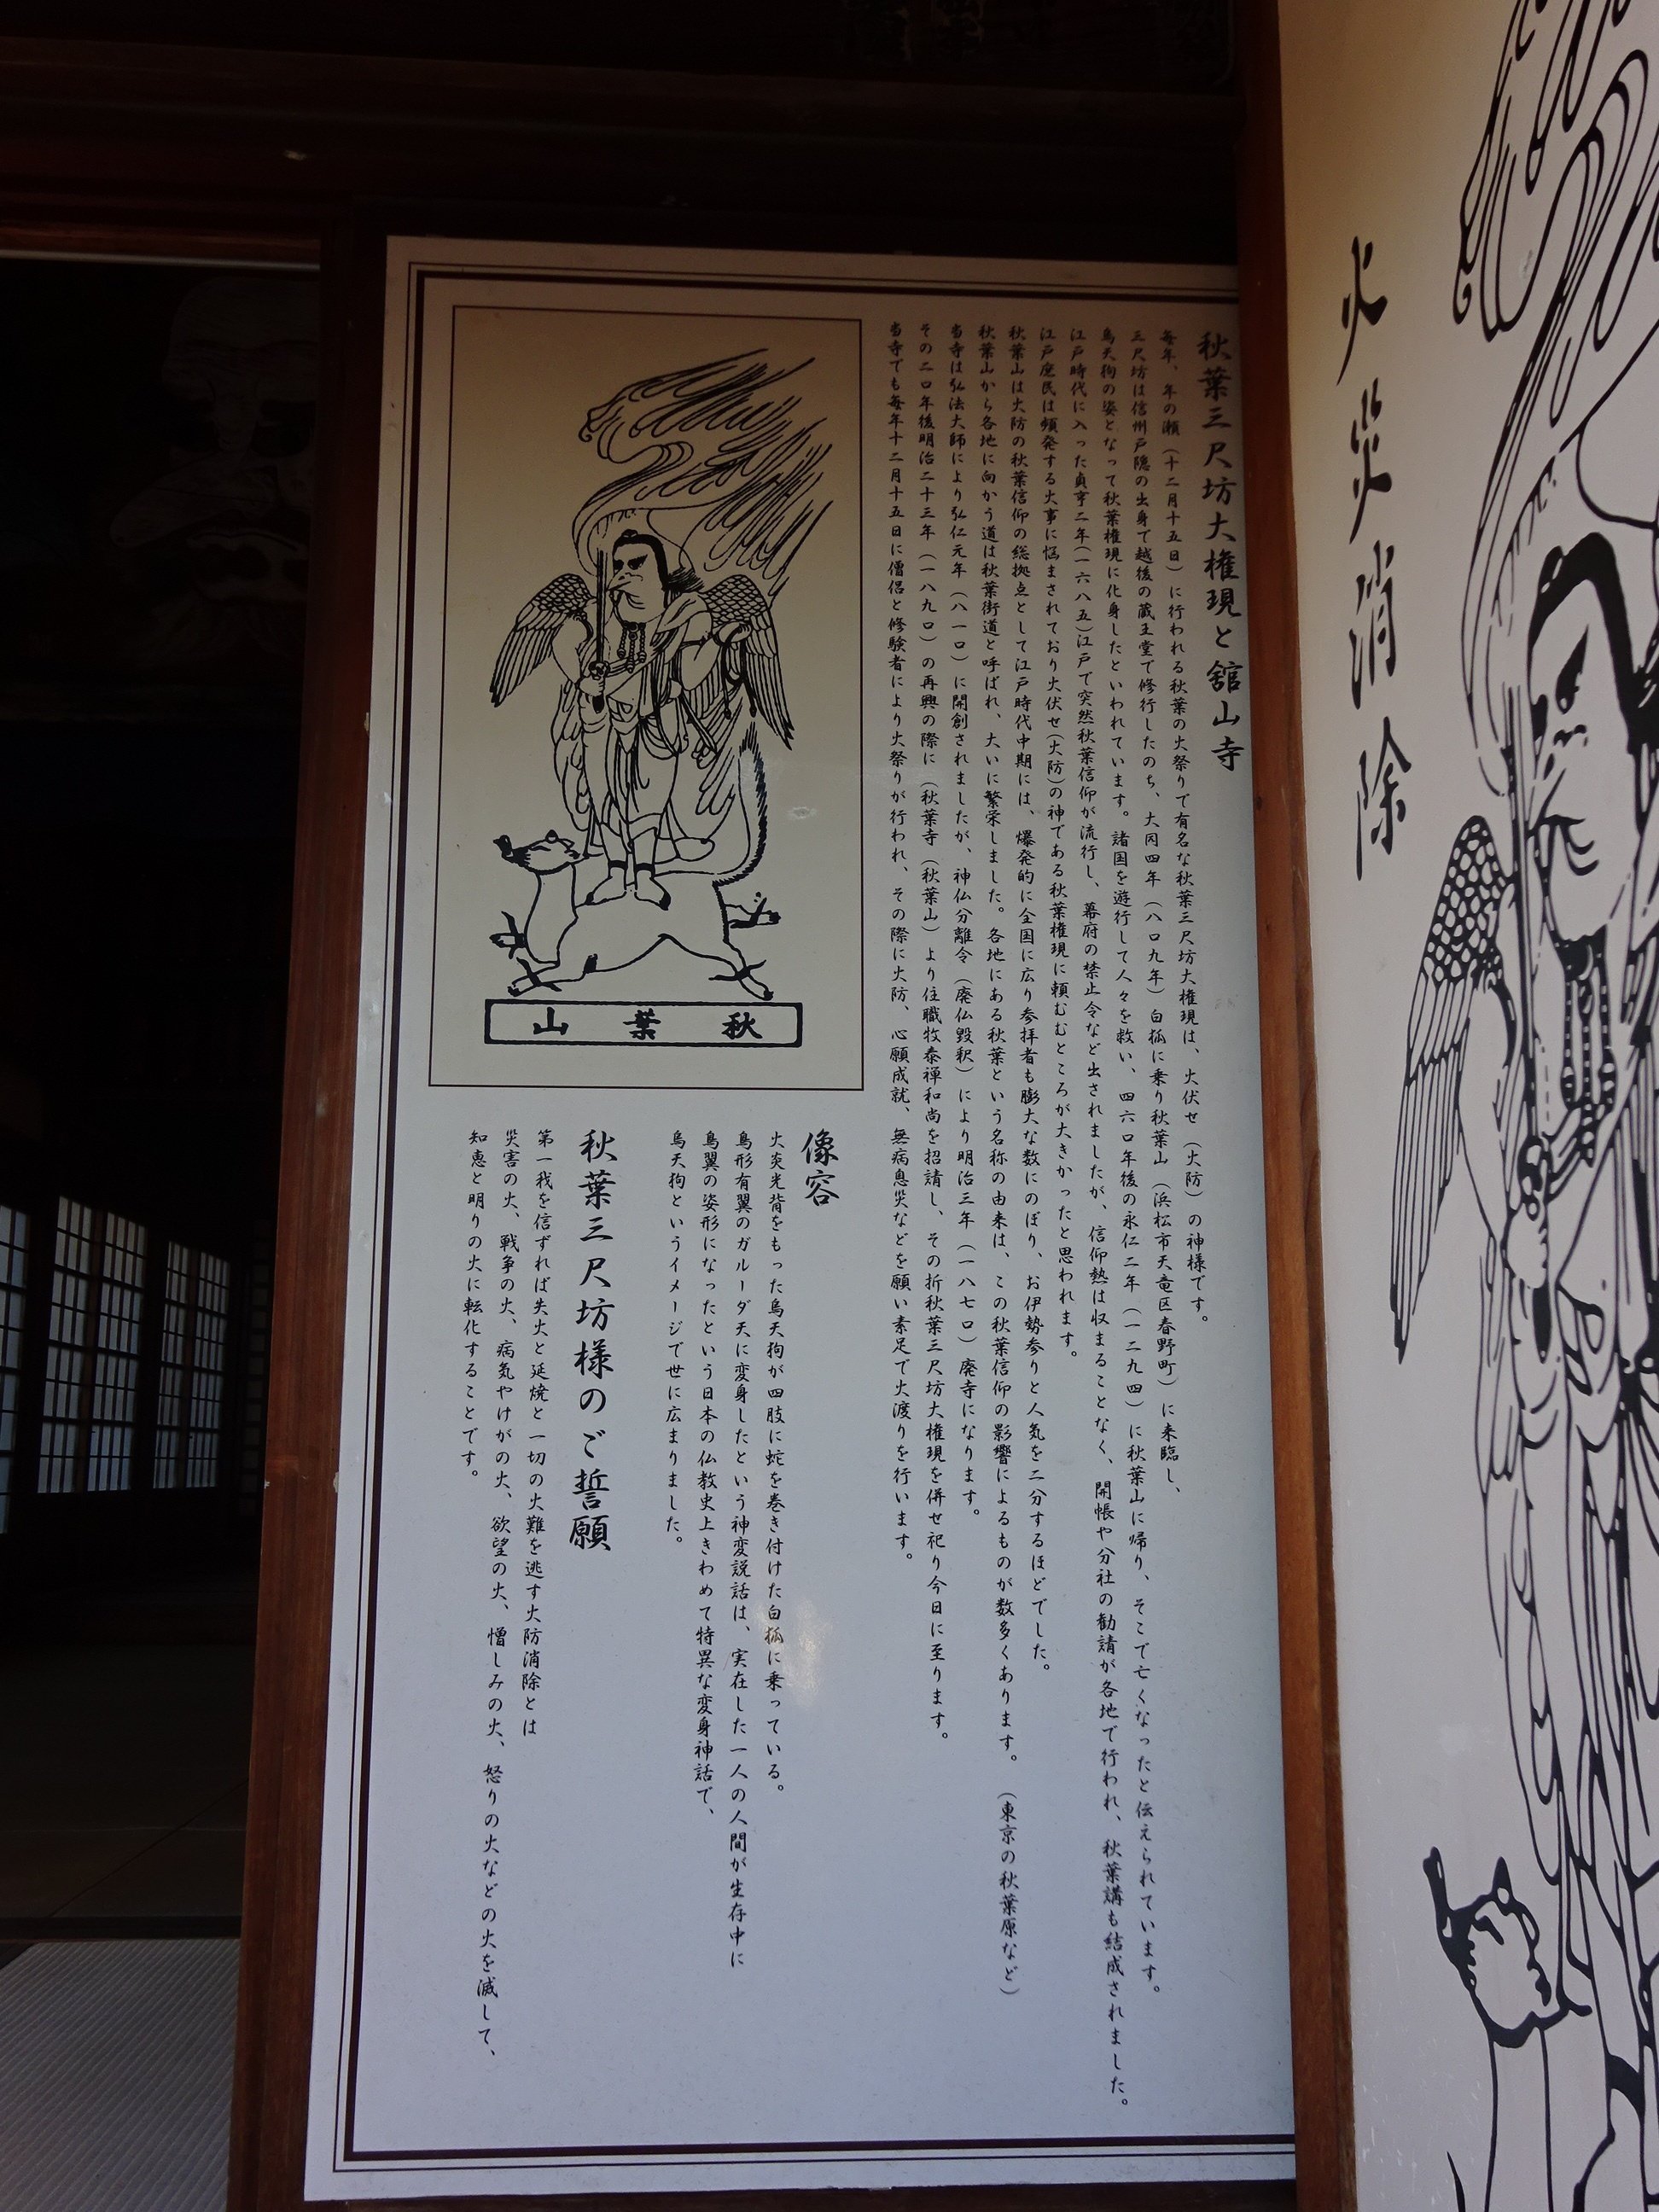 火災消除
秋葉三尺坊大権現と舘山寺
毎年、年の瀬（十二月十五日）に行われる秋葉の火祭りで有名な秋葉三尺坊大権現は、火伏せ（火防）の神様です。
三尺坊は信州戸隠の出身で越後の蔵王堂で修行したのち、大同四年（八〇九年）白狐に乗り秋葉山（浜松市天竜区春野町）に来臨し、
烏天狗の姿となって秋葉権現に化身したといわれています。諸国を遊行して人々を救い、四六〇年後の永仁二年（一二九四）に秋葉山に帰り、そこで亡くなったと伝えられています。
江戸時代に入った貞享二年（一六八五）江戸で突然秋葉信仰が流行し、幕府の禁止令など出されましたが、信仰熱は収まることなく、開帳や分社の勧請が各地で行われ、秋葉講も結成されました。
江戸庶民は頻発する火事に悩まされており火伏せ（火防）の神である秋葉権現に頼むところが大きかったと思われます。
秋葉山は火防の秋葉信仰の総拠点として江戸時代中期には、爆発的に全国に広り参拝者も膨大な数にのぼり、お伊勢参りと人気を二分するほどでした。
秋葉山から各地に向かう道は秋葉街道と呼ばれ、大いに繁栄しました。各地にある秋葉という名称の由来は、この秋葉信仰の影響によるものが数多くあります。（東京の秋葉原など）
当寺は弘法大師により弘仁元年（八一〇）に開創されましたが、神仏分離令（廃仏毀釈）により明治三年（一八七〇）廃寺になります。
その二〇年後明治二十三年（一八九〇）の再興の際に（秋葉寺（秋葉山）より住職牧泰禅和尚を招請し、その折秋葉三尺坊大権現を併せ祀り今日に至ります。
当寺でも毎年十二月十五日に僧侶と修験者により火祭りが行われ、その際に火防、心願成就、無病息災などを願い素足で火渡りを行います。
秋葉山
像容
火炎光背をもった烏天狗が四肢に蛇を巻き付けた白狐に乗っている。
鳥形有翼のガルーダ天に変身したという神変説話は、実在した一人の人間が生存中に
鳥翼の姿形になったという日本の仏教史上きわめて特異な変身神話で、
烏天狗というイメージで世に広まりました。
秋葉三尺坊様のご誓願
第一我を信ずれば失火と延焼と一切の火難を逃す火防消除とは
災害の火、戦争の火、病気やけがの火、欲望の火、憎しみの火、怒りの火などの火を滅して、
知恵と明りの火に転化することです。